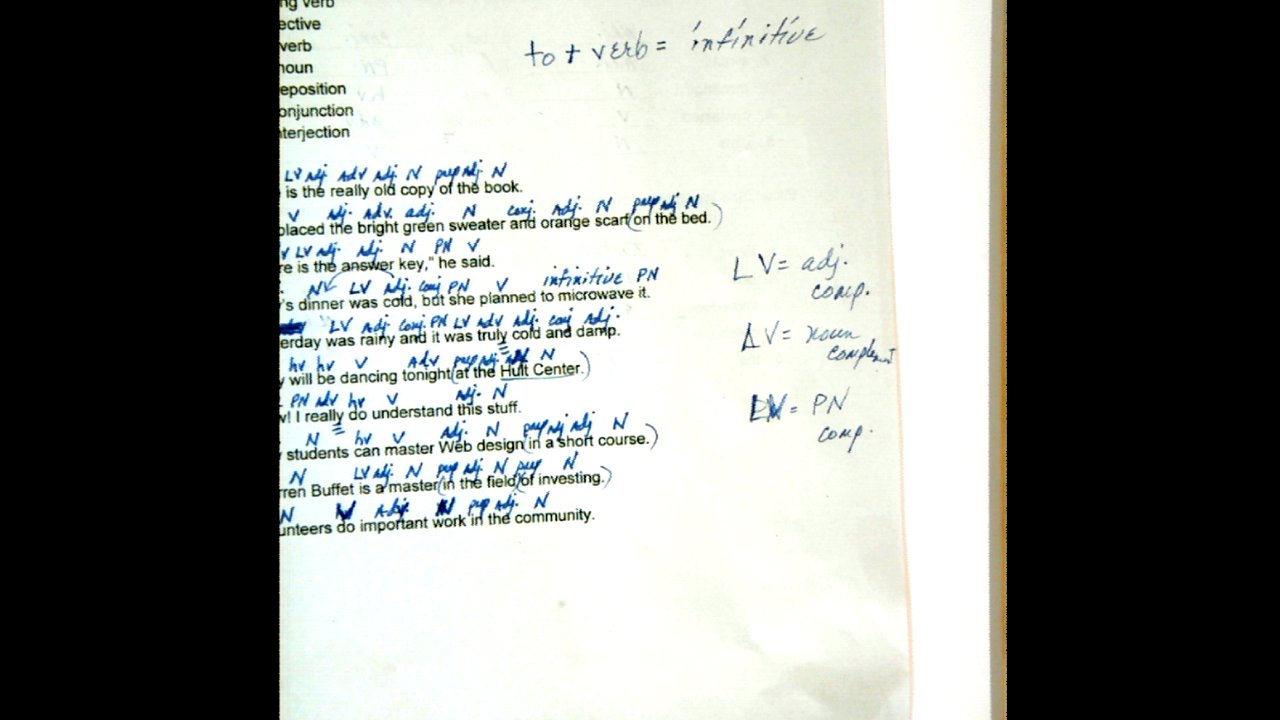 ng verb
ective
verb
noun
eposition
onjunction
nterjection
to + verb = infinitive
LV adj. adv adj. N prep adj. N
is the really old copy of the book.
V adj. adv. adj. N conj. Adj. N prep adj N
placed the bright green sweater and orange scarf (on the bed.)
V LV adj. adj. N PN V
re is the answer key," he said.
LV adj. conj PN V infinitive PN
's dinner was cold, but she planned to microwave it.
LV Adj conj. PN LV adv Adj. conj Adj.
erday was rainy and it was truly cold and damp.
hv hv V Adv prep adj. N
y will be dancing tonight (at the Hult Center.)
PN adv hv V adj. N
w! I really do understand this stuff.
N hv V Adj. N prep adj adj N
students can master Web design (in a short course.)
N LV adj. N prep adj. N prep N
rren Buffet is a master (in the field) (of investing.)
N V Adj. N prep Adj. N
unteers do important work in the community.
LV = adj.
comp.
LV = noun
complement
LV = PN
comp.